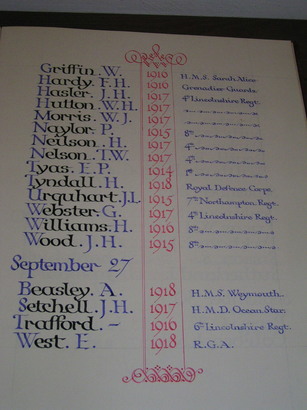 Griffin. W. 1916 H.M.S. Sarah Alice
Hardy. F.H. 1916 Grenadier Guards.
Hasler. J.H. 1917 4th Lincolnshire Regt.
Hutton. W.H. 1917
Morris. W.J. 1917
Naylor. P. 1915 8th
Neilson. H. 1917 4th
Nelson. T.W. 1917 4th
Tyas. E.P. 1914 1st
Tyndall. H. 1918 Royal Defence Corps.
Urquhart. J.L 1915 7th Northampton Regt.
Webster. G. 1917 4th Lincolnshire Regt.
Williams. H. 1916 8th
Wood. J.H. 1915 8th
September 27
Beasley. A. 1918 H.M.S. Weymouth.
Setchell. J.H. 1917 H.M.D. Ocean Star.
Trafford. – 1916 6th Lincolnshire Regt.
West. E. 1918 R.G.A.